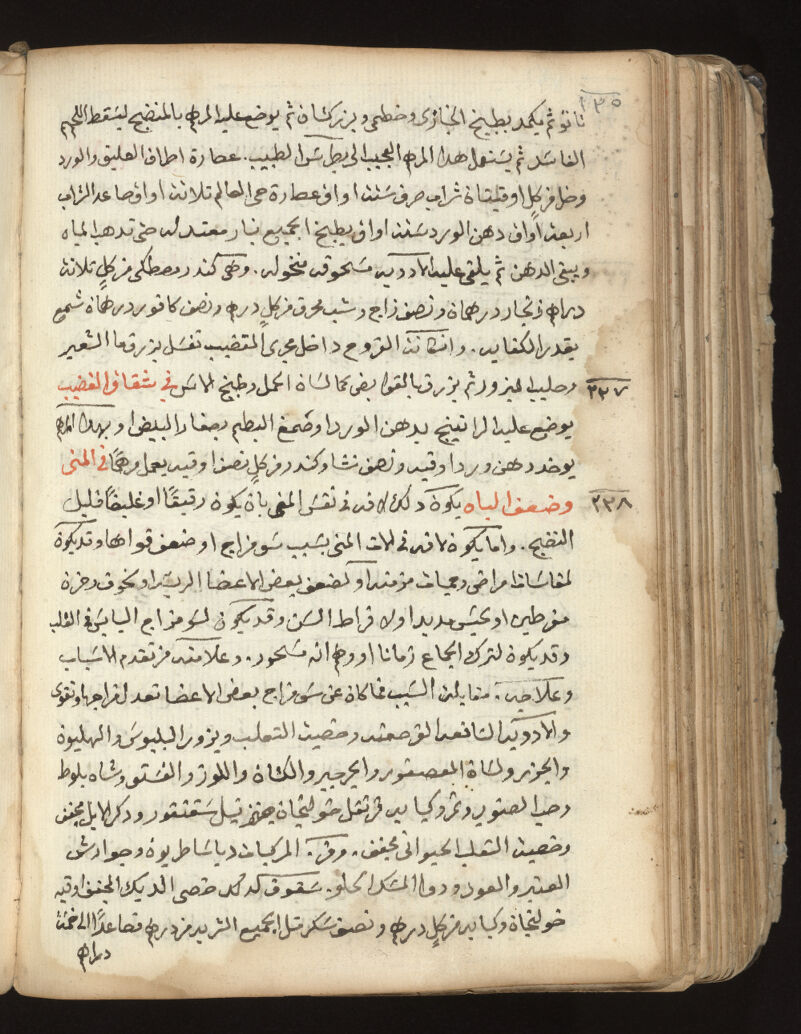 ٢٣٥
ثم يكمد بطبيخ الخبازى وخطمى وبزر كتان ثم يوضع عليه المرهم بالمنضج ليسقط اللحم
الفاسد ثم يستعمل هذا المرهم العجيب الى بطل الطبيب. عصارة اطراف العليق والورد
وخل من كل اوقيتان شراب صرف ستة اواق عصارة حى العالم ثلاثة اواق صاعد الراب
اربعة اواق دهن الورد ستة اواق يطبخ الجميع بنار معتدله حتى تذهب المياه
ويبقى الدهن ثم يلقى عليه الادويه مسحوقه منخوله. وهى كندر مصطكى من كل ثلاثة
دراهم زنجار درهمان ونصف زاج وشب محرق من كل درهم ونصف كافور درهمان شمع
بقدر الكفايه. وان كانت القروح داخل مجرى القضيب تغسل بزرق ما الشعير
٢٣٧ وحليب البزور ثم يزرق بالقوابض كما لسان الحمل وطبيخ الاس في شقاق القضيب
يوضع عليه الراتينج بدهن الورد او صمغ البطم بصفار البيض او بهذا المرهم
يوخد دهن ورد اوقيه ونصف نشا وكندر من كل نصف اوقيه يعمل مرهما في المنى
٢٣٨ وضعف الباه يكون ذلك لافه في نفس المنى بان يكون رقيقا او غليضا قليل
النضج. واما يكون لافه في الات المنى بسبب سو مزاج او ضعف قواها وقد يكون
لمقاسات امراض وحميات مزمنه او لضعف بعض الاعضا الريسه او لخوف وحزن
مفرطين او لحبس مديد او لافراط السن وقد يكون لسو مزاج اليابس في القلب
وقد يكون لترك الجماع زمانا او وهم انه مسحور. وعلامته من تقدم الاسباب
وعلاجه. مقابلة السبب فما كان عن سو مزاج بعض الاعضا تعدل مزاجها وتقوى
والادويه النافعه القرصعنه وخصيت الثعلب وبزور البلبوس والهليون
والجزر ولسان العصفور والجرجير والكتان واللوز والفستق وشاه بلوط
وحب الصنوبر وكبابه قرنفل خولنجان سقنقور وذكر الايل مجفف
وخصيت الثعلب الحيوانى مجفف. ومن المركبات دياساطريون وجوارش
العنبر والعود ودوا المسك الحلو. سفوف لذلك خصى الديك المجفف اوقيه
خولنجان وكبابه من كل درهم ونصف سكر مثل الجميع الشربه من درهم فصاعدا الى خمسة
دراهم